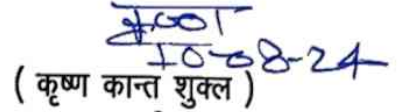 10-08-24
( कृष्ण कान्त शुक्ल )